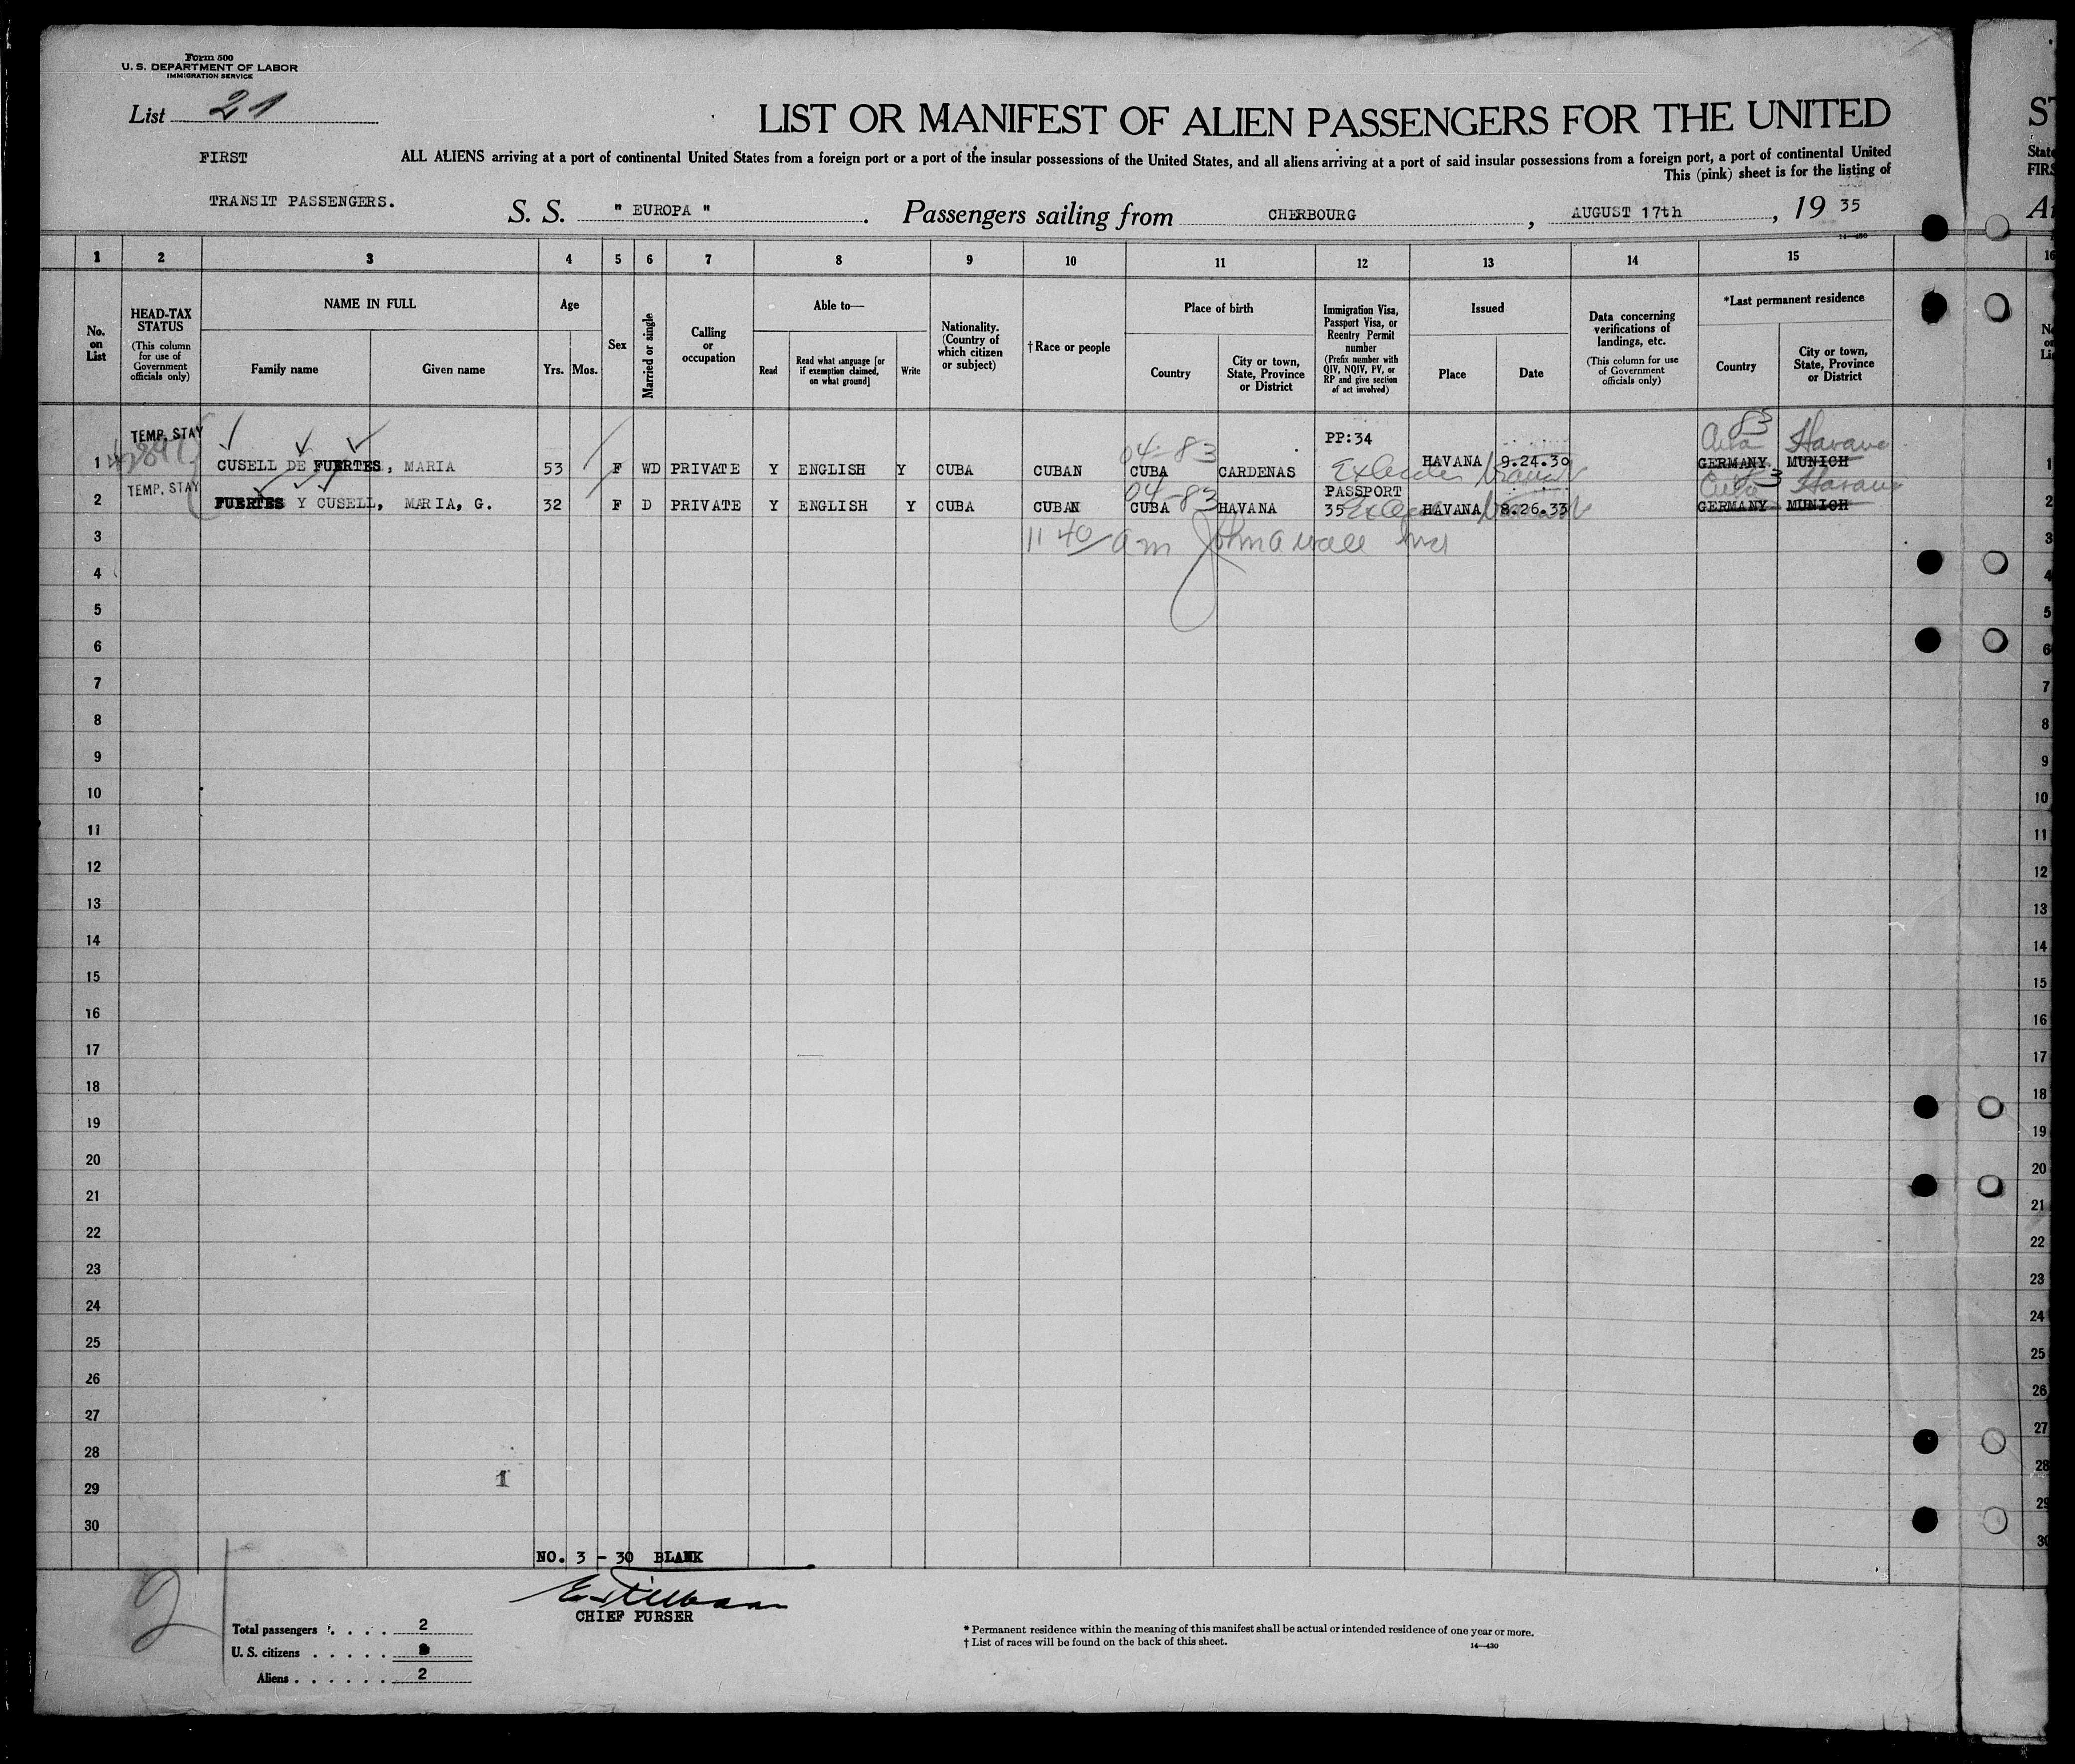 Form 500
U. S. DEPARTMENT OF LABOR
IMMIGRATION SERVICE
List 21
LIST OR MANIFEST OF ALIEN PASSENGERS FOR THE UNITED
ST
FIRST
ALL ALIENS arriving at a port of continental United States from a foreign port or a port of the insular possessions of the United States, and all aliens arriving at a port of said insular possessions from a foreign port, a port of continental United
State
This (pink) sheet is for the listing of
FIRS
TRANSIT PASSENGERS.
S. S. " EUROPA ". Passengers sailing from CHERBOURG, AUGUST 17th, 19 35
14—430
1 2 3 4 5 6 7 8 9 10 11 12 13 14 15 16
No. on List
HEAD-TAX STATUS
(This column for use of Government officials only)
NAME IN FULL
Family name
Given name
Age
Yrs. Mos.
Sex
Married or single
Calling or occupation
Able to—
Read
Read what language [or if exemption claimed, on what ground]
Write
Nationality. (Country of which citizen or subject)
† Race or people
Place of birth
Country
City or town, State, Province or District
Immigration Visa, Passport Visa, or Reentry Permit number
(Prefix number with QIV, NQIV, PV, or RP and give section of act involved)
Issued
Place
Date
Data concerning verifications of landings, etc.
(This column for use of Government officials only)
*Last permanent residence
Country
City or town, State, Province or District
TEMP. STAY PP:34 83
04-83 Cuba Havana
1 CUSELL DE FUERTES, MARIA 53 F WD PRIVATE Y ENGLISH Y CUBA CUBAN CUBA CARDENAS HAVANA 9.24.30 GERMANY MUNICH 1
TEMP. STAY 04-83 PASSPORT Cuba 83 Havana
2 FUERTES Y CUSELL, MARIA, G. 32 F D PRIVATE Y ENGLISH Y CUBA CUBAN CUBA HAVANA 35 HAVANA 8.26.33 GERMANY MUNICH 2
3 11 40/am 3
4 4
5 5
6 6
7 7
8 8
9 9
10 10
11 11
12 12
13 13
14 14
15 15
16 16
17 17
18 18
19 19
20 20
21 21
22 22
23 23
24 24
25 25
26 26
27 27
28 28
1
29 29
30 30
NO. 3 - 30 BLANK
2
CHIEF PURSER
Total passengers . . . . 2
U. S. citizens . . . . .
Aliens . . . . . . 2
* Permanent residence within the meaning of this manifest shall be actual or intended residence of one year or more.
† List of races will be found on the back of this sheet.
14—430